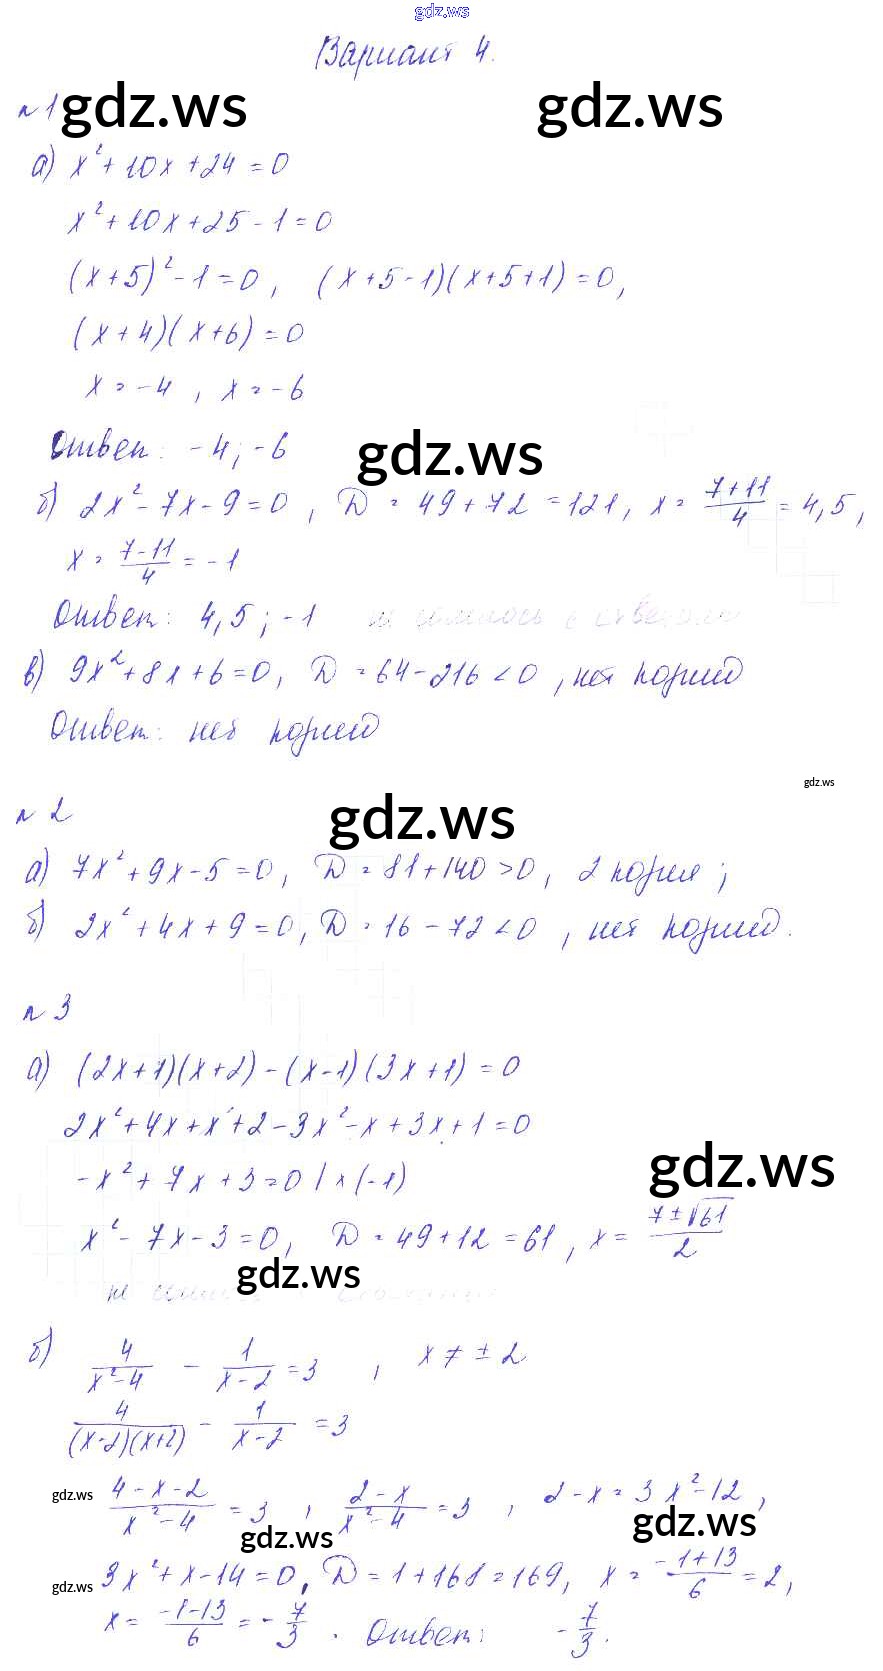 gdz.ws
Вариант 4.
n 1 gdz.ws gdz.ws
а) x² + 10x + 24 = 0
x² + 10x + 25 - 1 = 0
(x + 5)² - 1 = 0, (x + 5 - 1)(x + 5 + 1) = 0,
(x + 4)(x + 6) = 0
x = -4, x = -6
Ответ: -4; -6 gdz.ws
б) 2x² - 7x - 9 = 0, D = 49 + 72 = 121, x = (7+11)/4 = 4,5,
x = (7-11)/4 = -1
Ответ: 4,5; -1
в) 9x² + 8x + 6 = 0, D = 64 - 216 < 0, нет корней
Ответ: нет корней
gdz.ws
n 2 gdz.ws
а) 7x² + 9x - 5 = 0, D = 81 + 140 > 0, 2 корня;
б) 2x² + 4x + 9 = 0, D = 16 - 72 < 0, нет корней.
n 3
а) (2x + 1)(x + 2) - (x - 1)(3x + 1) = 0
2x² + 4x + x + 2 - 3x² - x + 3x + 1 = 0
gdz.ws
-x² + 7x + 3 = 0 | × (-1)
x² - 7x - 3 = 0, D = 49 + 12 = 61, x = (7 ± √61)/2
gdz.ws
б) 4/(x² - 4) - 1/(x - 2) = 3, x ≠ ± 2
4/((x-2)(x+2)) - 1/(x-2) = 3
gdz.ws (4 - x - 2)/(x² - 4) = 3, (2 - x)/(x² - 4) = 3, 2 - x = 3x² - 12,
gdz.ws gdz.ws
gdz.ws 3x² + x - 14 = 0, D = 1 + 168 = 169, x = (-1+13)/6 = 2,
x = (-1-13)/6 = -7/3. Ответ: -7/3.